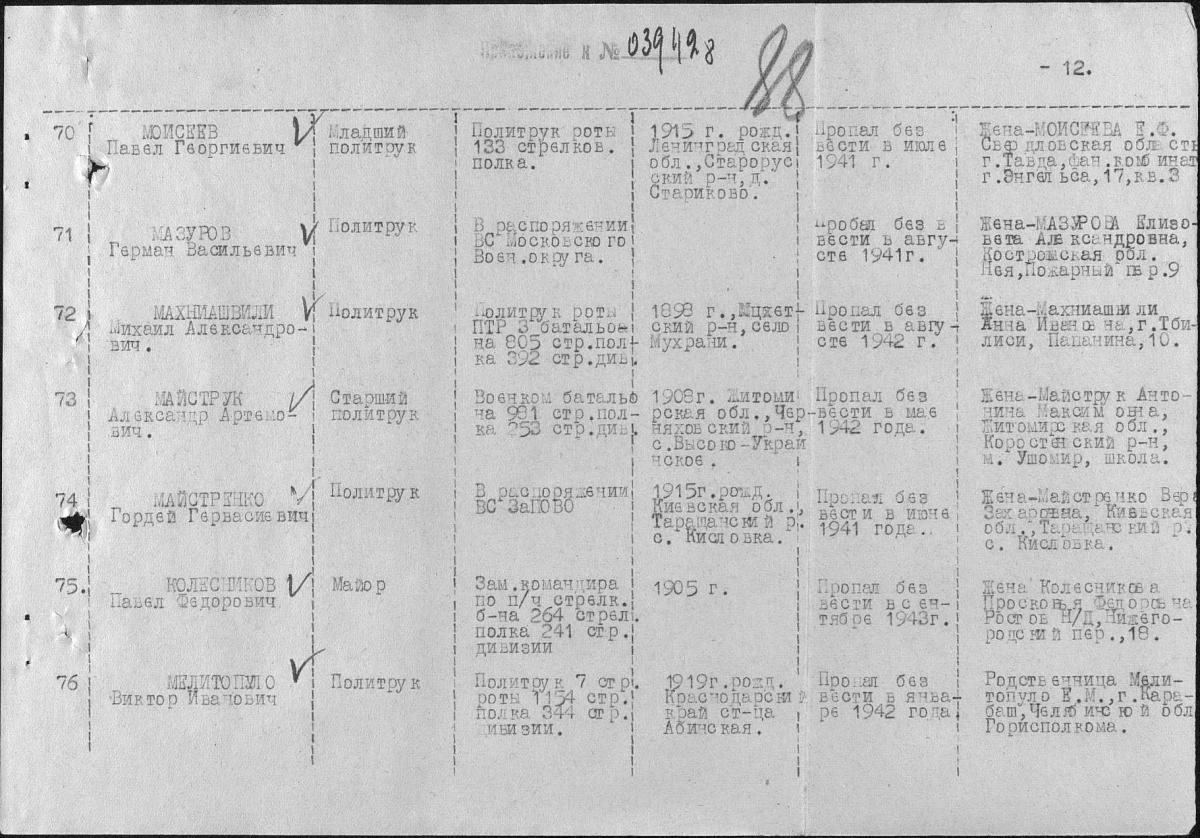 Приложение к № 039428
88
- 12.
70 МОИСЕЕВ Павел Георгиевич Младший политрук Политрук роты 133 стрелков. полка. 1915 г. рожд. Ленинградская обл.,Старорус ский р-н,д. Стариково. Пропал без вести в июле 1941 г. Жена-МОИСЕЕВА Е.Ф. Свердловская область г.Тавда,фан.комбинат г.Энгельса,17,кв.3
71 МАЗУРОВ Герман Васильевич Политрук В распоряжении ВС Московского Воен.округа. Пробал без в вести в авгу- сте 1941г. Жена-МАЗУРОВА Елизо- вета Александровна, Костромская обл. Нея,Пожарный пер.9
72 МАХНИАШВИЛИ Михаил Александро- вич. Политрук Политрук роты ПТР 3 батальо- на 805 стр.пол- ка 392 стр.див. 1898 г.,Мцхет- ский р-н,село Мухрани. Пропал без вести в авгу- сте 1942 г. Жена-Махниашвили Анна Ивановна,г.Тби- лиси, Папанина,10.
73 МАЙСТРУК Александр Артемо- вич. Старший политрук Военком баталь­о на 981 стр.пол- ка 253 стр.див. 1908г. Житоми рская обл.,Чер- няховский р-н, с.Высоко-Украи нское. Пропал без вести в мае 1942 года. Жена-Майструк Анто- нина Максимовна, Житомирская обл., Коростенский р-н, м. Ушомир, школа.
74 МАЙСТРЕНКО Гордей Гервасиевич Политрук В распоряжении ВС ЗаПОВО 1915г.рожд. Киевская обл., Таращанский р. с. Кисловка. Пропал без вести в июне 1941 года. Жена-Майстренко Вера Захаровна, Киевская обл.,Таращанский р. с. Кисловка.
75. КОЛЕСНИКОВ Павел Федорович Майор Зам.командира по п/ч стрелк. б-на 264 стрел. полка 241 стр. дивизии 1905 г. Пропал без вести в сен- тябре 1943г. Жена Колесникова Просковья Федоровна Ростов Н/Д,Нижего- родский пер.,18.
76 МЕЛИТОПУЛО Виктор Иванович Политрук Политрук 7 стр. роты 1154 стр. полка 344 стр. дивизии. 1919г.рожд. Краснодарский край ст-ца Абинская. Пропал без вести в янва- ре 1942 года. Родственница Мели- топуло Е.М.,г.Кара- баш,Челябинской обл Горисполкома.